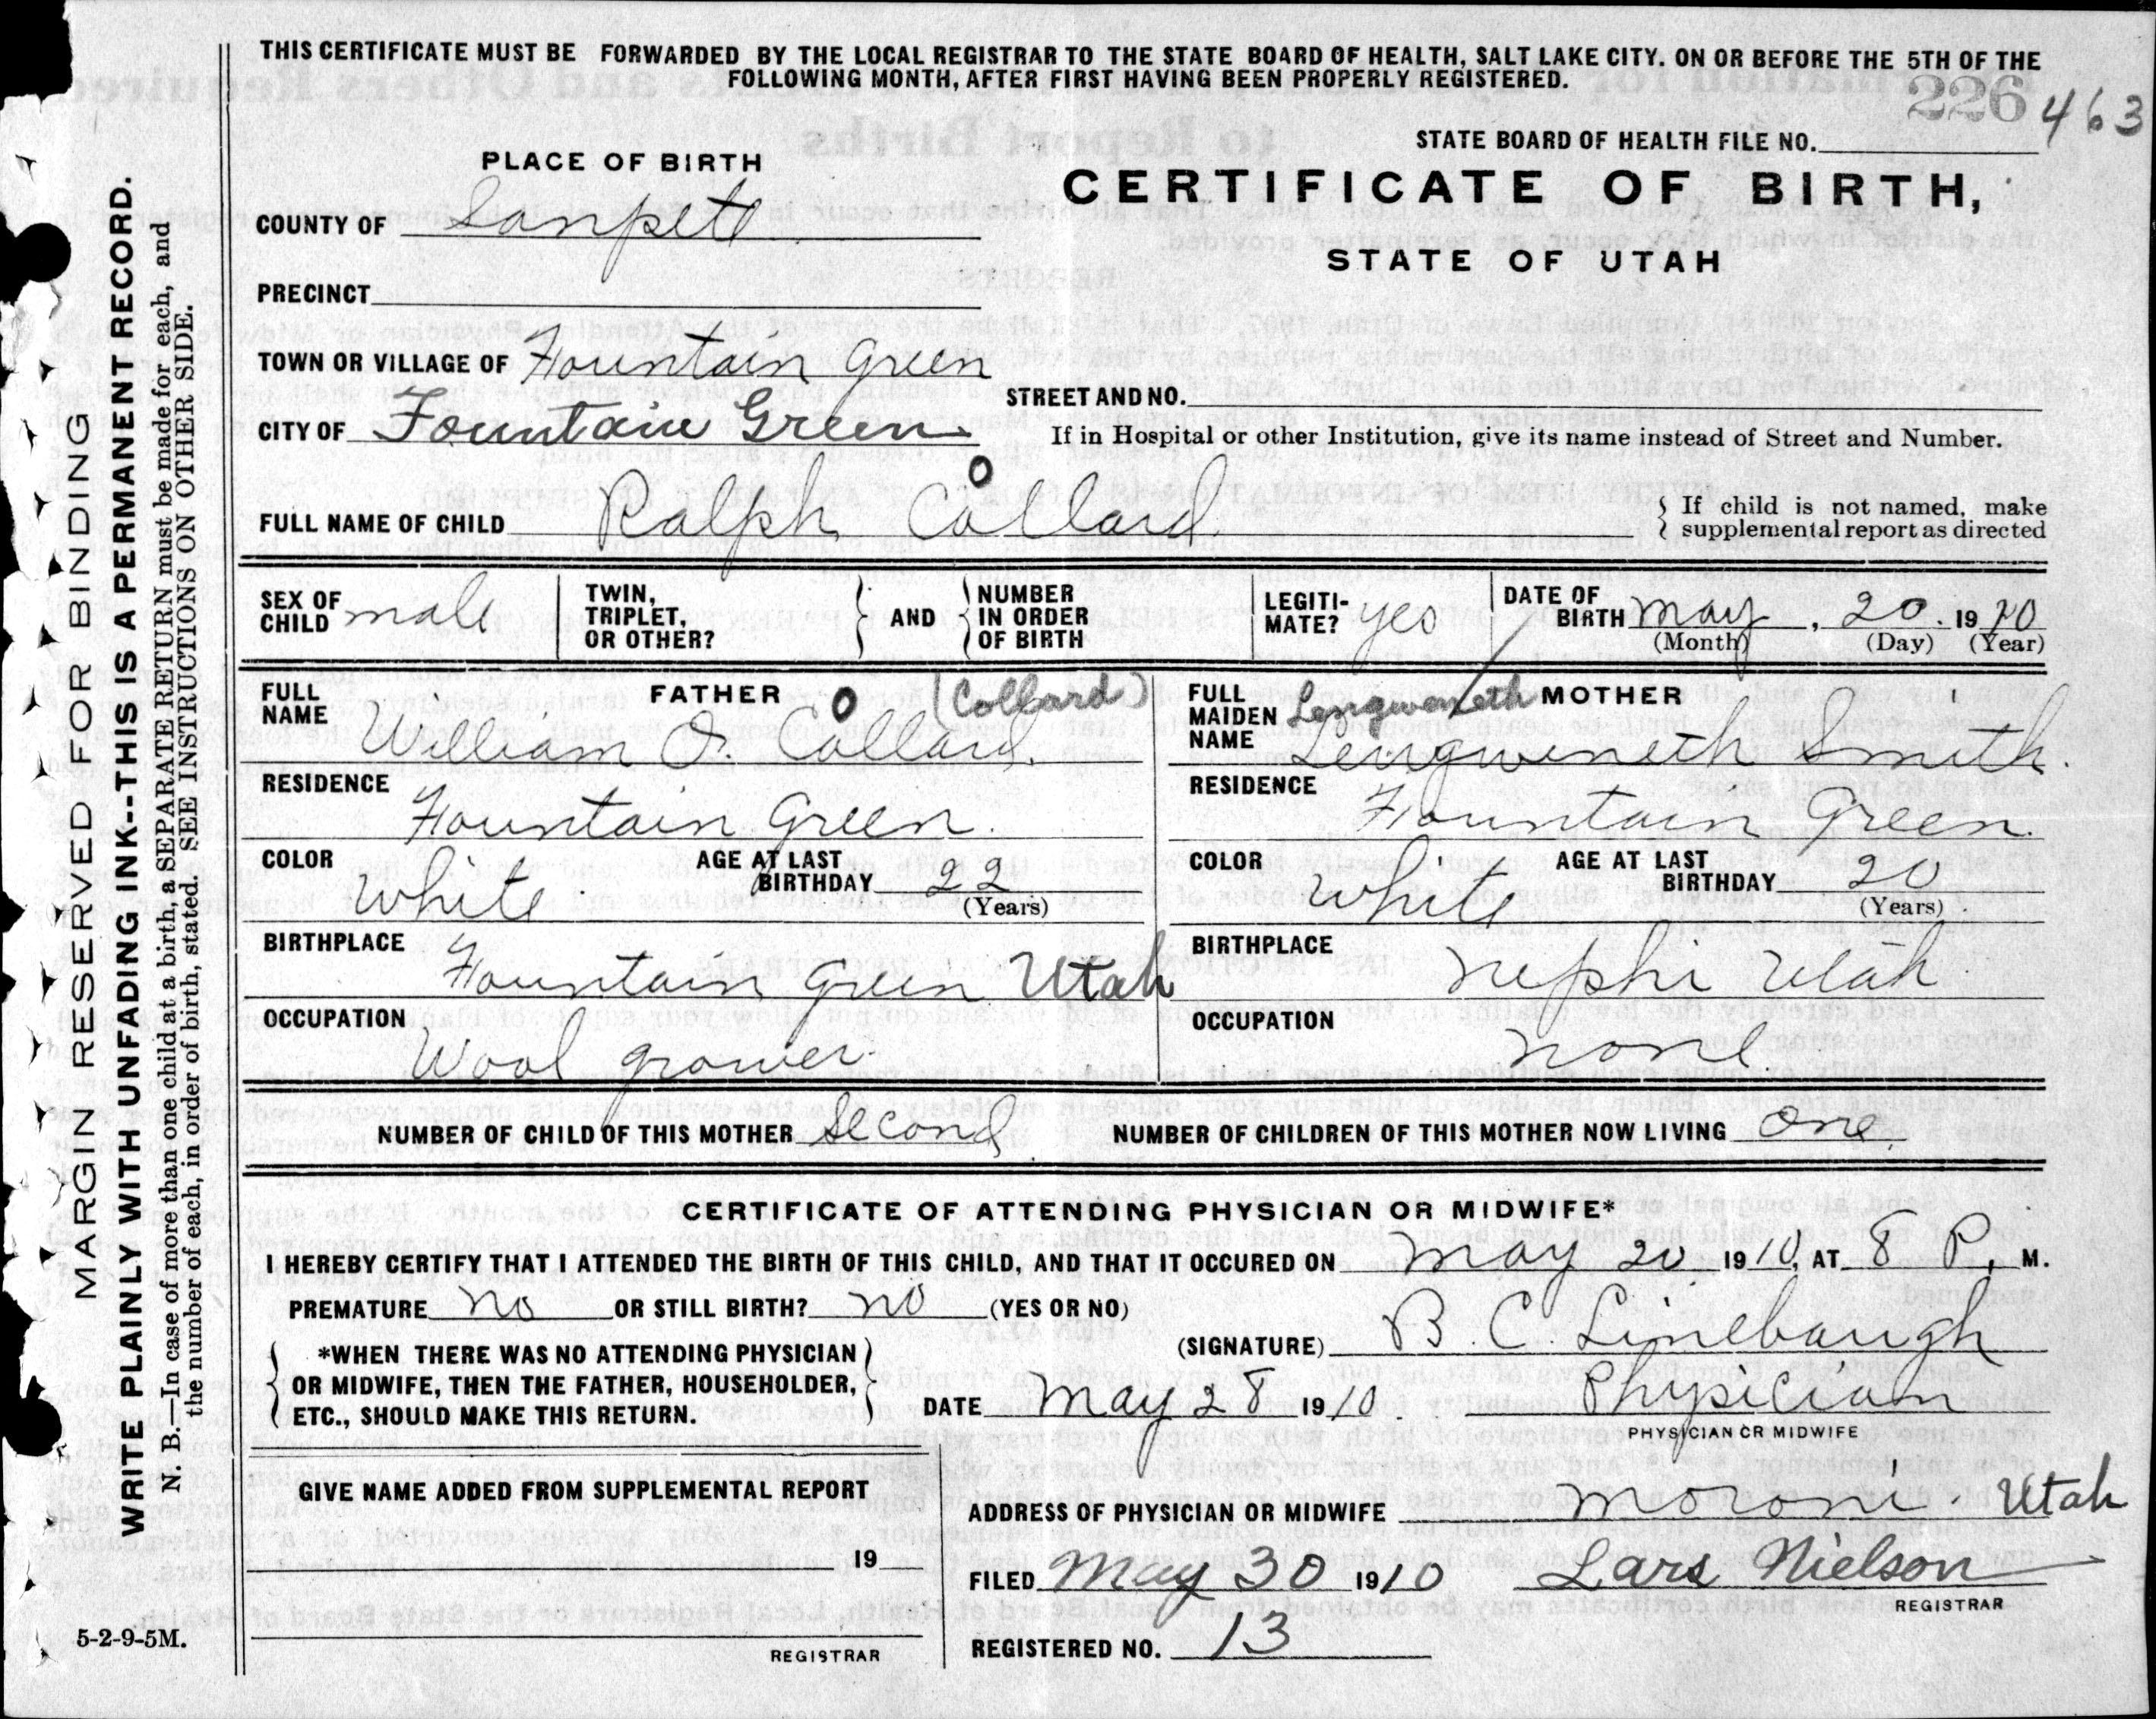 THIS CERTIFICATE MUST BE FORWARDED BY THE LOCAL REGISTRAR TO THE STATE BOARD OF HEALTH, SALT LAKE CITY. ON OR BEFORE THE 5TH OF THE
FOLLOWING MONTH, AFTER FIRST HAVING BEEN PROPERLY REGISTERED.
226 463
STATE BOARD OF HEALTH FILE NO.
PLACE OF BIRTH
CERTIFICATE OF BIRTH,
COUNTY OF Sanpete
STATE OF UTAH
PRECINCT
TOWN OR VILLAGE OF Fountain Green
STREET AND NO.
CITY OF Fountain Green
If in Hospital or other Institution, give its name instead of Street and Number.
o
FULL NAME OF CHILD Ralph Collard
If child is not named, make
supplemental report as directed
SEX OF CHILD male
TWIN, TRIPLET, OR OTHER?
AND
NUMBER IN ORDER OF BIRTH
LEGITI-MATE? yes
DATE OF BIRTH May, 20. 1910
(Month) (Day) (Year)
FATHER
o (Collard)
FULL NAME William O. Collard.
RESIDENCE
Fountain Green.
COLOR White
AGE AT LAST BIRTHDAY 22
(Years)
BIRTHPLACE
Fountain Green Utah
OCCUPATION
Wool grower.
MOTHER
Lengweneth
FULL MAIDEN NAME Lengweneth Smith.
RESIDENCE
Fountain Green.
COLOR White
AGE AT LAST BIRTHDAY 20
(Years)
BIRTHPLACE
Nephi Utah.
OCCUPATION
none
NUMBER OF CHILD OF THIS MOTHER Second
NUMBER OF CHILDREN OF THIS MOTHER NOW LIVING One.
CERTIFICATE OF ATTENDING PHYSICIAN OR MIDWIFE*
I HEREBY CERTIFY THAT I ATTENDED THE BIRTH OF THIS CHILD, AND THAT IT OCCURED ON May 20 1910, AT 8 P. M.
PREMATURE no OR STILL BIRTH? no (YES OR NO)
(SIGNATURE) B. C. Linebaugh
*WHEN THERE WAS NO ATTENDING PHYSICIAN
OR MIDWIFE, THEN THE FATHER, HOUSEHOLDER,
ETC., SHOULD MAKE THIS RETURN.
DATE May 28 1910. Physician
PHYSICIAN OR MIDWIFE
GIVE NAME ADDED FROM SUPPLEMENTAL REPORT
19
REGISTRAR
ADDRESS OF PHYSICIAN OR MIDWIFE Moroni. Utah
FILED May 30 1910 Lars Nielson
REGISTRAR
REGISTERED NO. 13
MARGIN RESERVED FOR BINDING
WRITE PLAINLY WITH UNFADING INK--THIS IS A PERMANENT RECORD.
N. B.—In case of more than one child at a birth, a SEPARATE RETURN must be made for each, and
the number of each, in order of birth, stated. SEE INSTRUCTIONS ON OTHER SIDE.
5-2-9-5M.